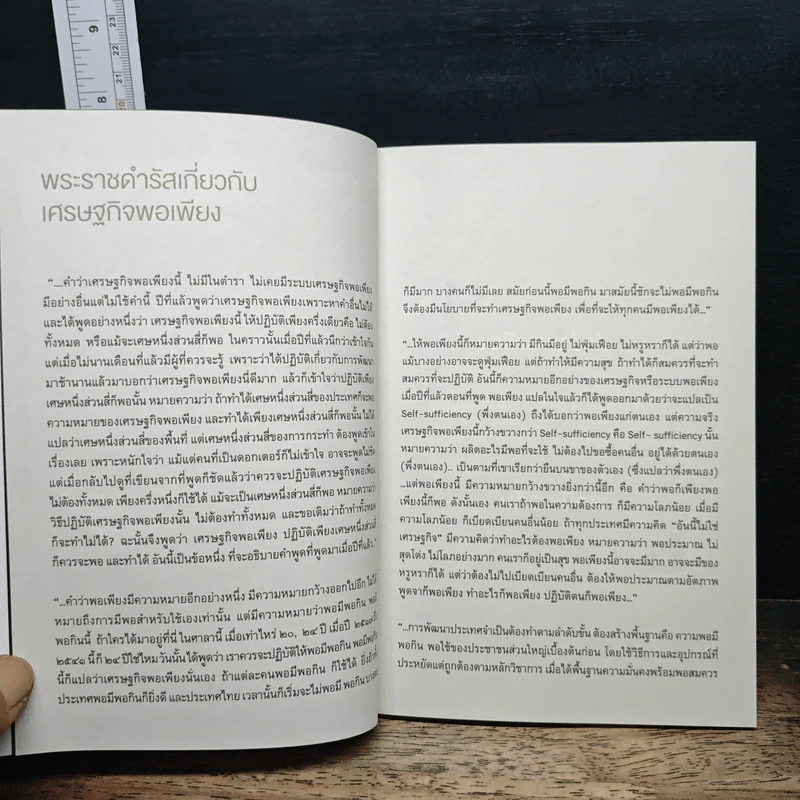 9
8
23
22
21
20
พระราชดำรัสเกี่ยวกับ
เศรษฐกิจพอเพียง
“....คำว่าเศรษฐกิจพอเพียงนี้ ไม่มีในตำรา ไม่เคยมีระบบเศรษฐกิจพอเพียง
มีอย่างอื่นแต่ไม่ใช้คำนี้ ปีที่แล้วพูดว่าเศรษฐกิจพอเพียงเพราะหาคำอื่นไม่ได้
และได้พูดอย่างหนึ่งว่า เศรษฐกิจพอเพียงนี้ ให้ปฏิบัติเพียงครึ่งเดียวคือ ไม่ต้อง
ทั้งหมด หรือแม้จะเศษหนึ่งส่วนสี่ก็พอ ในคราวนั้นเมื่อปีที่แล้วนึกว่าเข้าใจกัน
แต่เมื่อไม่นานเดือนที่แล้วมีผู้ที่ควรจะรู้ เพราะว่าได้ปฏิบัติเกี่ยวกับการพัฒนา
มาช้านานแล้วมาบอกว่าเศรษฐกิจพอเพียงนี้ดีมาก แล้วก็เข้าใจว่าปฏิบัติเพียง
เศษหนึ่งส่วนสี่ก็พอนั้น หมายความว่า ถ้าทำได้เศษหนึ่งส่วนสี่ของประเทศก็จะพอ
ความหมายของเศรษฐกิจพอเพียง และทำได้เพียงเศษหนึ่งส่วนสี่ก็พอนั้นไม่ได้
แปลว่าเศษหนึ่งส่วนสี่ของพื้นที่ แต่เศษหนึ่งส่วนสี่ของการกระทำ ต้องพูดเข้าใน
เรื่องเลย เพราะหนักใจว่า แม้แต่คนที่เป็นดอกเตอร์ก็ไม่เข้าใจ อาจจะพูดไม่ชัด
แต่เมื่อกลับไปดูที่เขียนจากที่พูดก็ชัดแล้วว่าควรจะปฏิบัติเศรษฐกิจพอเพียง
ไม่ต้องทั้งหมด เพียงครึ่งหนึ่งก็ใช้ได้ แม้จะเป็นเศษหนึ่งส่วนสี่ก็พอ หมายความว่า
วิธีปฏิบัติเศรษฐกิจพอเพียงนั้น ไม่ต้องทำทั้งหมด และขอเติมว่าถ้าทำทั้งหมด
ก็จะทำไม่ได้? ฉะนั้นจึงพูดว่า เศรษฐกิจพอเพียง ปฏิบัติเพียงเศษหนึ่งส่วนสี่
ก็ควรจะพอ และทำได้ อันนี้เป็นข้อหนึ่ง ที่จะอธิบายคำพูดที่พูดมาเมื่อปีที่แล้ว..”
“...คำว่าพอเพียงมีความหมายอีกอย่างหนึ่ง มีความหมายกว้างออกไปอีก ไม่ได้
หมายถึงการมีพอสำหรับใช้เองเท่านั้น แต่มีความหมายว่าพอมีพอกิน พอมี
พอกินนี้ ถ้าใครได้มาอยู่ที่นี่ ในศาลานี้ เมื่อเท่าไหร่ ๒๐, ๒๔ ปี เมื่อปี ๒๕๑๗
๒๕๔๑ นี้ก็ ๒๔ ปีใช่ไหม วันนั้นได้พูดว่า เราควรจะปฏิบัติให้พอมีพอกิน พอมีพอกิน
นี้ก็แปลว่าเศรษฐกิจพอเพียงนั่นเอง ถ้าแต่ละคนพอมีพอกิน ก็ใช้ได้ ยิ่งถ้าทั้ง
ประเทศพอมีพอกินก็ยิ่งดี และประเทศไทย เวลานั้นก็เริ่มจะไม่พอมี พอกิน บางคน
ก็มีมาก บางคนก็ไม่มีเลย สมัยก่อนนี้พอมีพอกิน มาสมัยนี้ชักจะไม่พอมีพอกิน
จึงต้องมีนโยบายที่จะทำเศรษฐกิจพอเพียง เพื่อที่จะให้ทุกคนมีพอเพียงได้...”
“...ให้พอเพียงนี้ก็หมายความว่า มีกินมีอยู่ ไม่ฟุ่มเฟือย ไม่หรูหราก็ได้ แต่ว่าพอ
แม้บางอย่างอาจจะดูฟุ่มเฟือย แต่ถ้าทำให้มีความสุข ถ้าทำได้ก็สมควรที่จะทำ
สมควรที่จะปฏิบัติ อันนี้ก็ความหมายอีกอย่างของเศรษฐกิจหรือระบบพอเพียง
เมื่อปีที่แล้วตอนที่พูด พอเพียง แปลในใจแล้วก็ได้พูดออกมาด้วยว่าจะแปลเป็น
Self-sufficiency (พึ่งตนเอง) ถึงได้บอกว่าพอเพียงแก่ตนเอง แต่ความจริง
เศรษฐกิจพอเพียงนี้กว้างขวางกว่า Self-sufficiency คือ Self- sufficiency นั้น
หมายความว่า ผลิตอะไรมีพอที่จะใช้ ไม่ต้องไปขอซื้อคนอื่น อยู่ได้ด้วยตนเอง
(พึ่งตนเอง).. เป็นตามที่เขาเรียกว่ายืนบนขาของตัวเอง (ซึ่งแปลว่าพึ่งตนเอง)
...แต่พอเพียงนี้ มีความหมายกว้างขวางยิ่งกว่านี้อีก คือ คำว่าพอก็เพียงพอ
เพียงนี้ก็พอ ดังนั้นเอง คนเราถ้าพอในความต้องการ ก็มีความโลภน้อย เมื่อมี
ความโลภน้อย ก็เบียดเบียนคนอื่นน้อย ถ้าทุกประเทศมีความคิด “อันนี้ไม่ใช่
เศรษฐกิจ” มีความคิดว่าทำอะไรต้องพอเพียง หมายความว่า พอประมาณ ไม่
สุดโต่ง ไม่โลภอย่างมาก คนเราก็อยู่เป็นสุข พอเพียงนี้อาจจะมีมาก อาจจะมีของ
หรูหราก็ได้ แต่ว่าต้องไม่ไปเบียดเบียนคนอื่น ต้องให้พอประมาณตามอัตภาพ
พูดจาก็พอเพียง ทำอะไรก็พอเพียง ปฏิบัติตนก็พอเพียง...”
“...การพัฒนาประเทศจำเป็นต้องทำตามลำดับขั้น ต้องสร้างพื้นฐานคือ ความพอมี
พอกิน พอใช้ของประชาชนส่วนใหญ่เบื้องต้นก่อน โดยใช้วิธีการและอุปกรณ์ที่
ประหยัดแต่ถูกต้องตามหลักวิชาการ เมื่อได้พื้นฐานความมั่นคงพร้อมพอสมควร